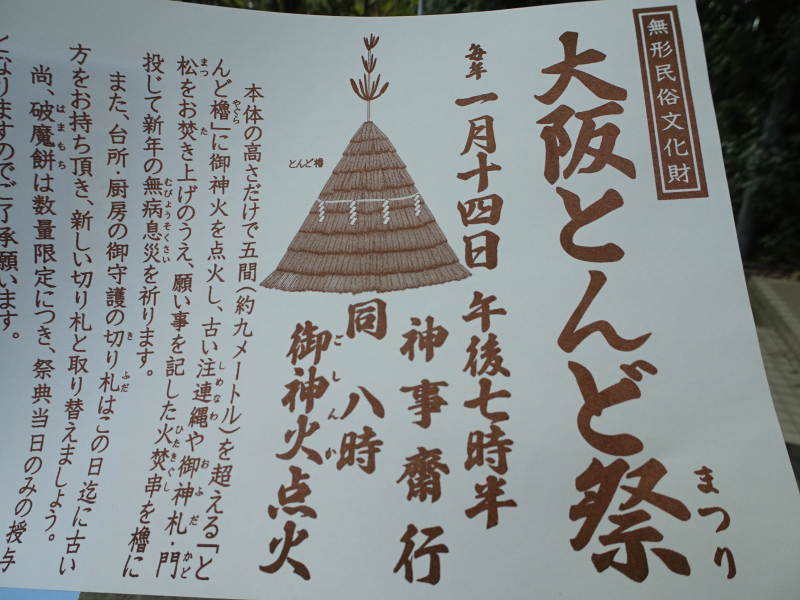 無形民俗文化財
大阪とんど祭
まつり
毎年 一月十四日 午後七時半
神事齋行
同 八時
御神火点火
ごしんか
とんど櫓
本体の高さだけで五間(約九メートル)を超える「と
んど櫓」に御神火を点火し、古い注連縄や御神札・門
やぐら しめなわ おふだ かど
松をお焚き上げのうえ、願い事を記した火焚串を櫓に
まつ た ひたきぐし
投じて新年の無病息災を祈ります。
むびょうそくさい
また、台所・厨房の御守護の切り札はこの日迄に古い
き ふだ
方をお持ち頂き、新しい切り札と取り替えましょう。
尚、破魔餅は数量限定につき、祭典当日のみの授与
はまもち
となりますのでご了承願います。